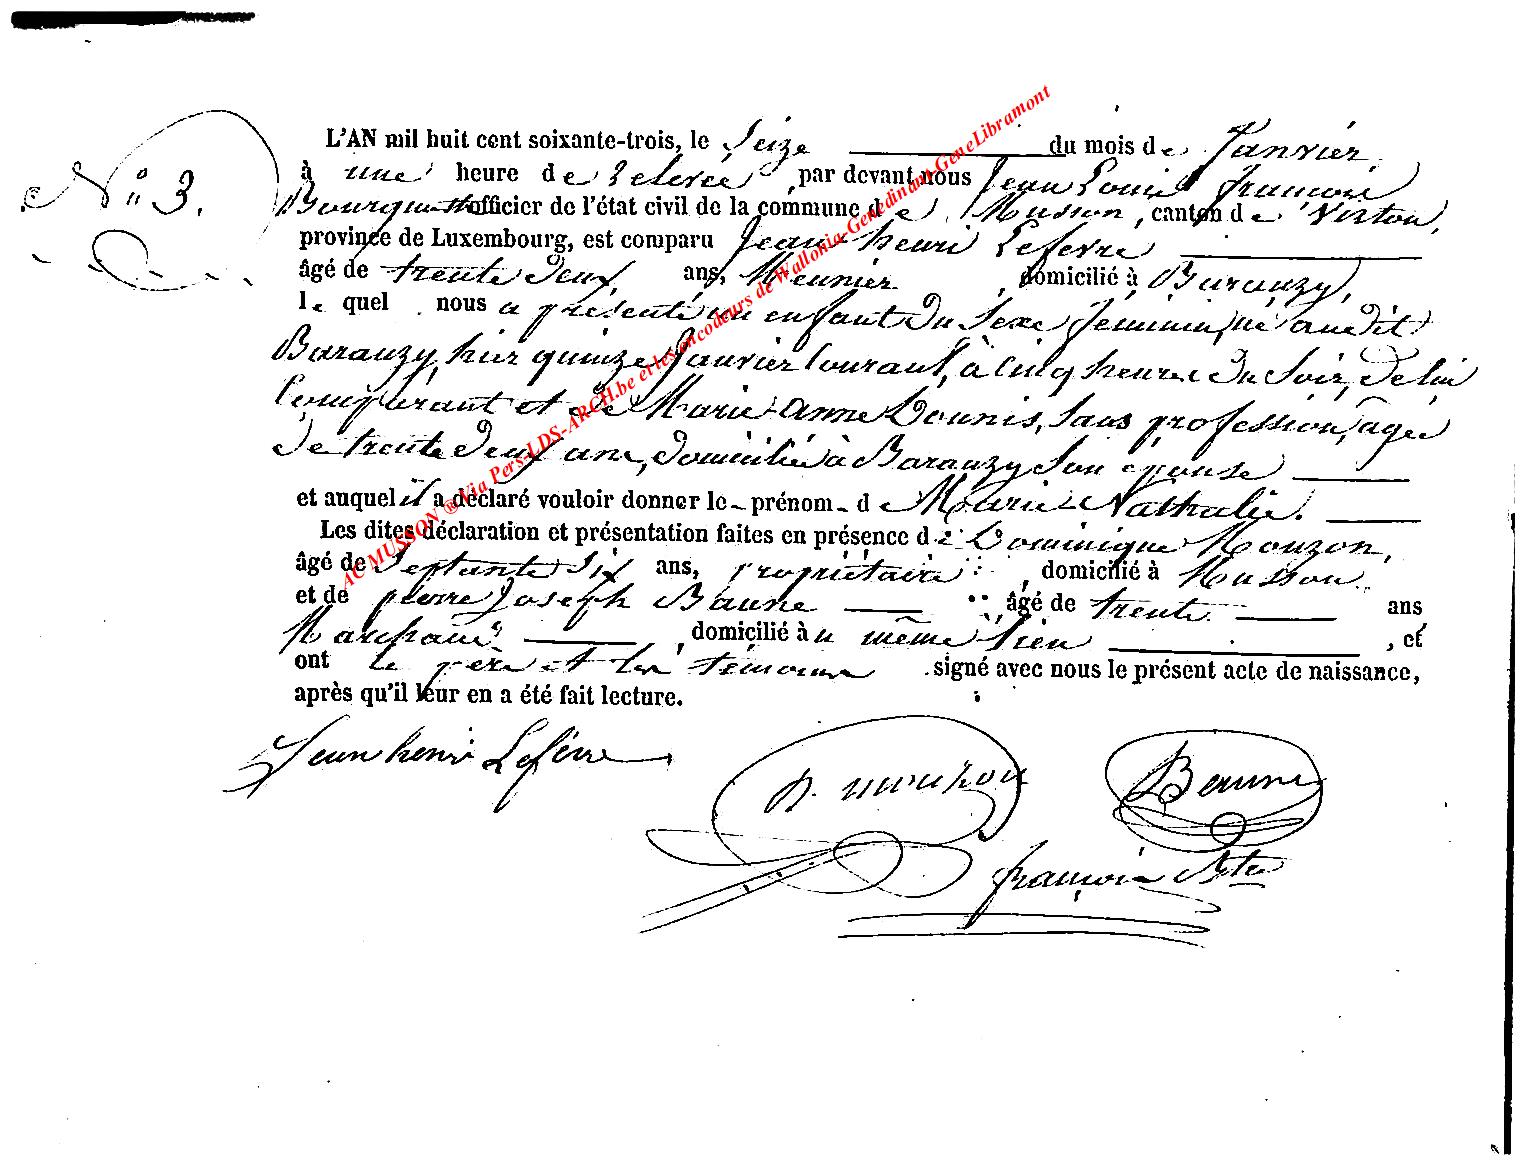 N° 3.
L'AN mil huit cent soixante-trois, le Seize du mois de Janvier
à une heure de relevée, par devant nous Jean Louis françois
officier de l'état civil de la commune de Musson, canton de Virton,
province de Luxembourg, est comparu Jean henri Lefevre
âgé de trente deux ans, Meunier, domicilié à Baranzy,
lequel nous a présenté un enfant du Sexe féminin, né audit
Baranzy, hier quinze Janvier Courant, à Cinq heures du Soir, de lui
Comparant et de Marie-Anne Dounis, Sans profession, âgée
de trente deux ans, domiciliée à Baranzy Son épouse
et auquel il a déclaré vouloir donner le prénom de Marie Nathalie.
Les dites déclaration et présentation faites en présence de Dominique Mouzon,
âgé de Septante Six ans, propriétaire, domicilié à Musson
et de pierre Joseph Baune âgé de trente ans
Marchand, domicilié au même lieu, et
ont le père et les témoins signé avec nous le présent acte de naissance,
après qu'il leur en a été fait lecture.
Jean henri Lefevre
D. mouzon
Baune
françois
AC MUSSON ® Via Pers-LDS-ARCH.be et les encodeurs de Wallonia-Genedinant-GeneLibramont